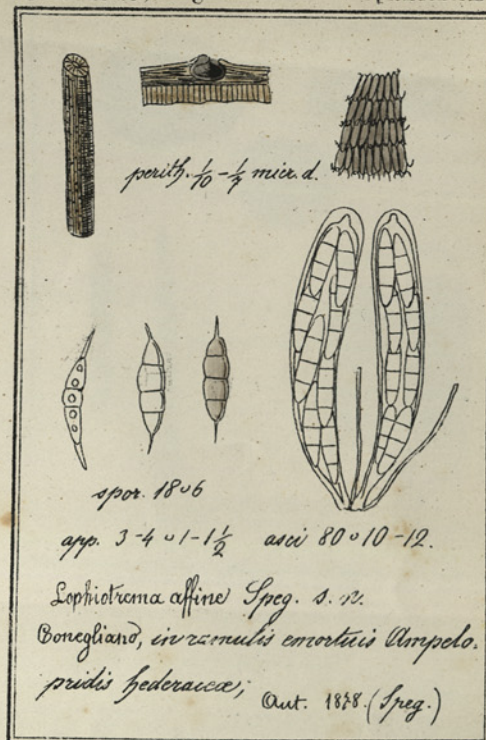 perith. 1/10 - 1/7 micr. d.
spor. 18 ᴗ 6
app. 3-4 ᴗ 1-1 1/2 asci 80 ᴗ 10-12.
Lophiotrema affine Speg. s. n.
Conegliano, in ramulis emortuis Ampelo-
psidis hederaceæ;
Aut. 1878. (Speg.)